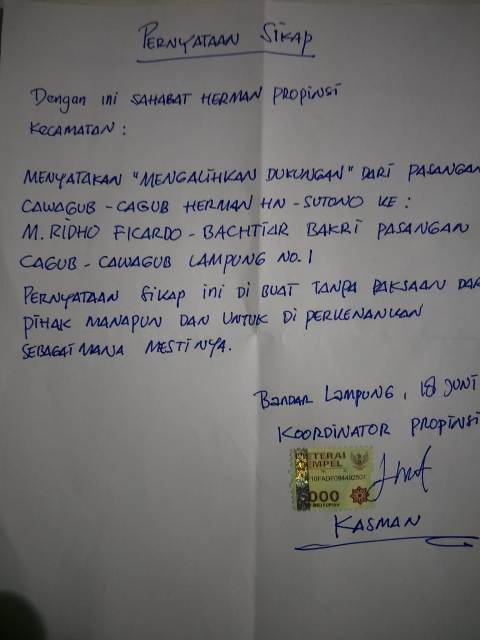 PERNYATAAN SIKAP
Dengan ini SAHABAT HERMAN PROPINSI
KECAMATAN :
MENYATAKAN "MENGALIHKAN DUKUNGAN" DARI PASANGAN
CAWAGUB - CAGUB HERMAN HN - SUTONO KE :
M. RIDHO FICARDO - BACHTIAR BAKRI PASANGAN
CAGUB - CAWAGUB LAMPUNG NO. 1
PERNYATAAN SIKAP INI DI BUAT TANPA PAKSAAN DAR
PIHAK MANAPUN DAN UNTUK DI PERKENANKAN
SEBAGAI MANA MESTINYA.
BANDAR LAMPUNG, 18 JUNI
KOORDINATOR PROPINSI
ETERAI
EMPEL
000
KASMAN